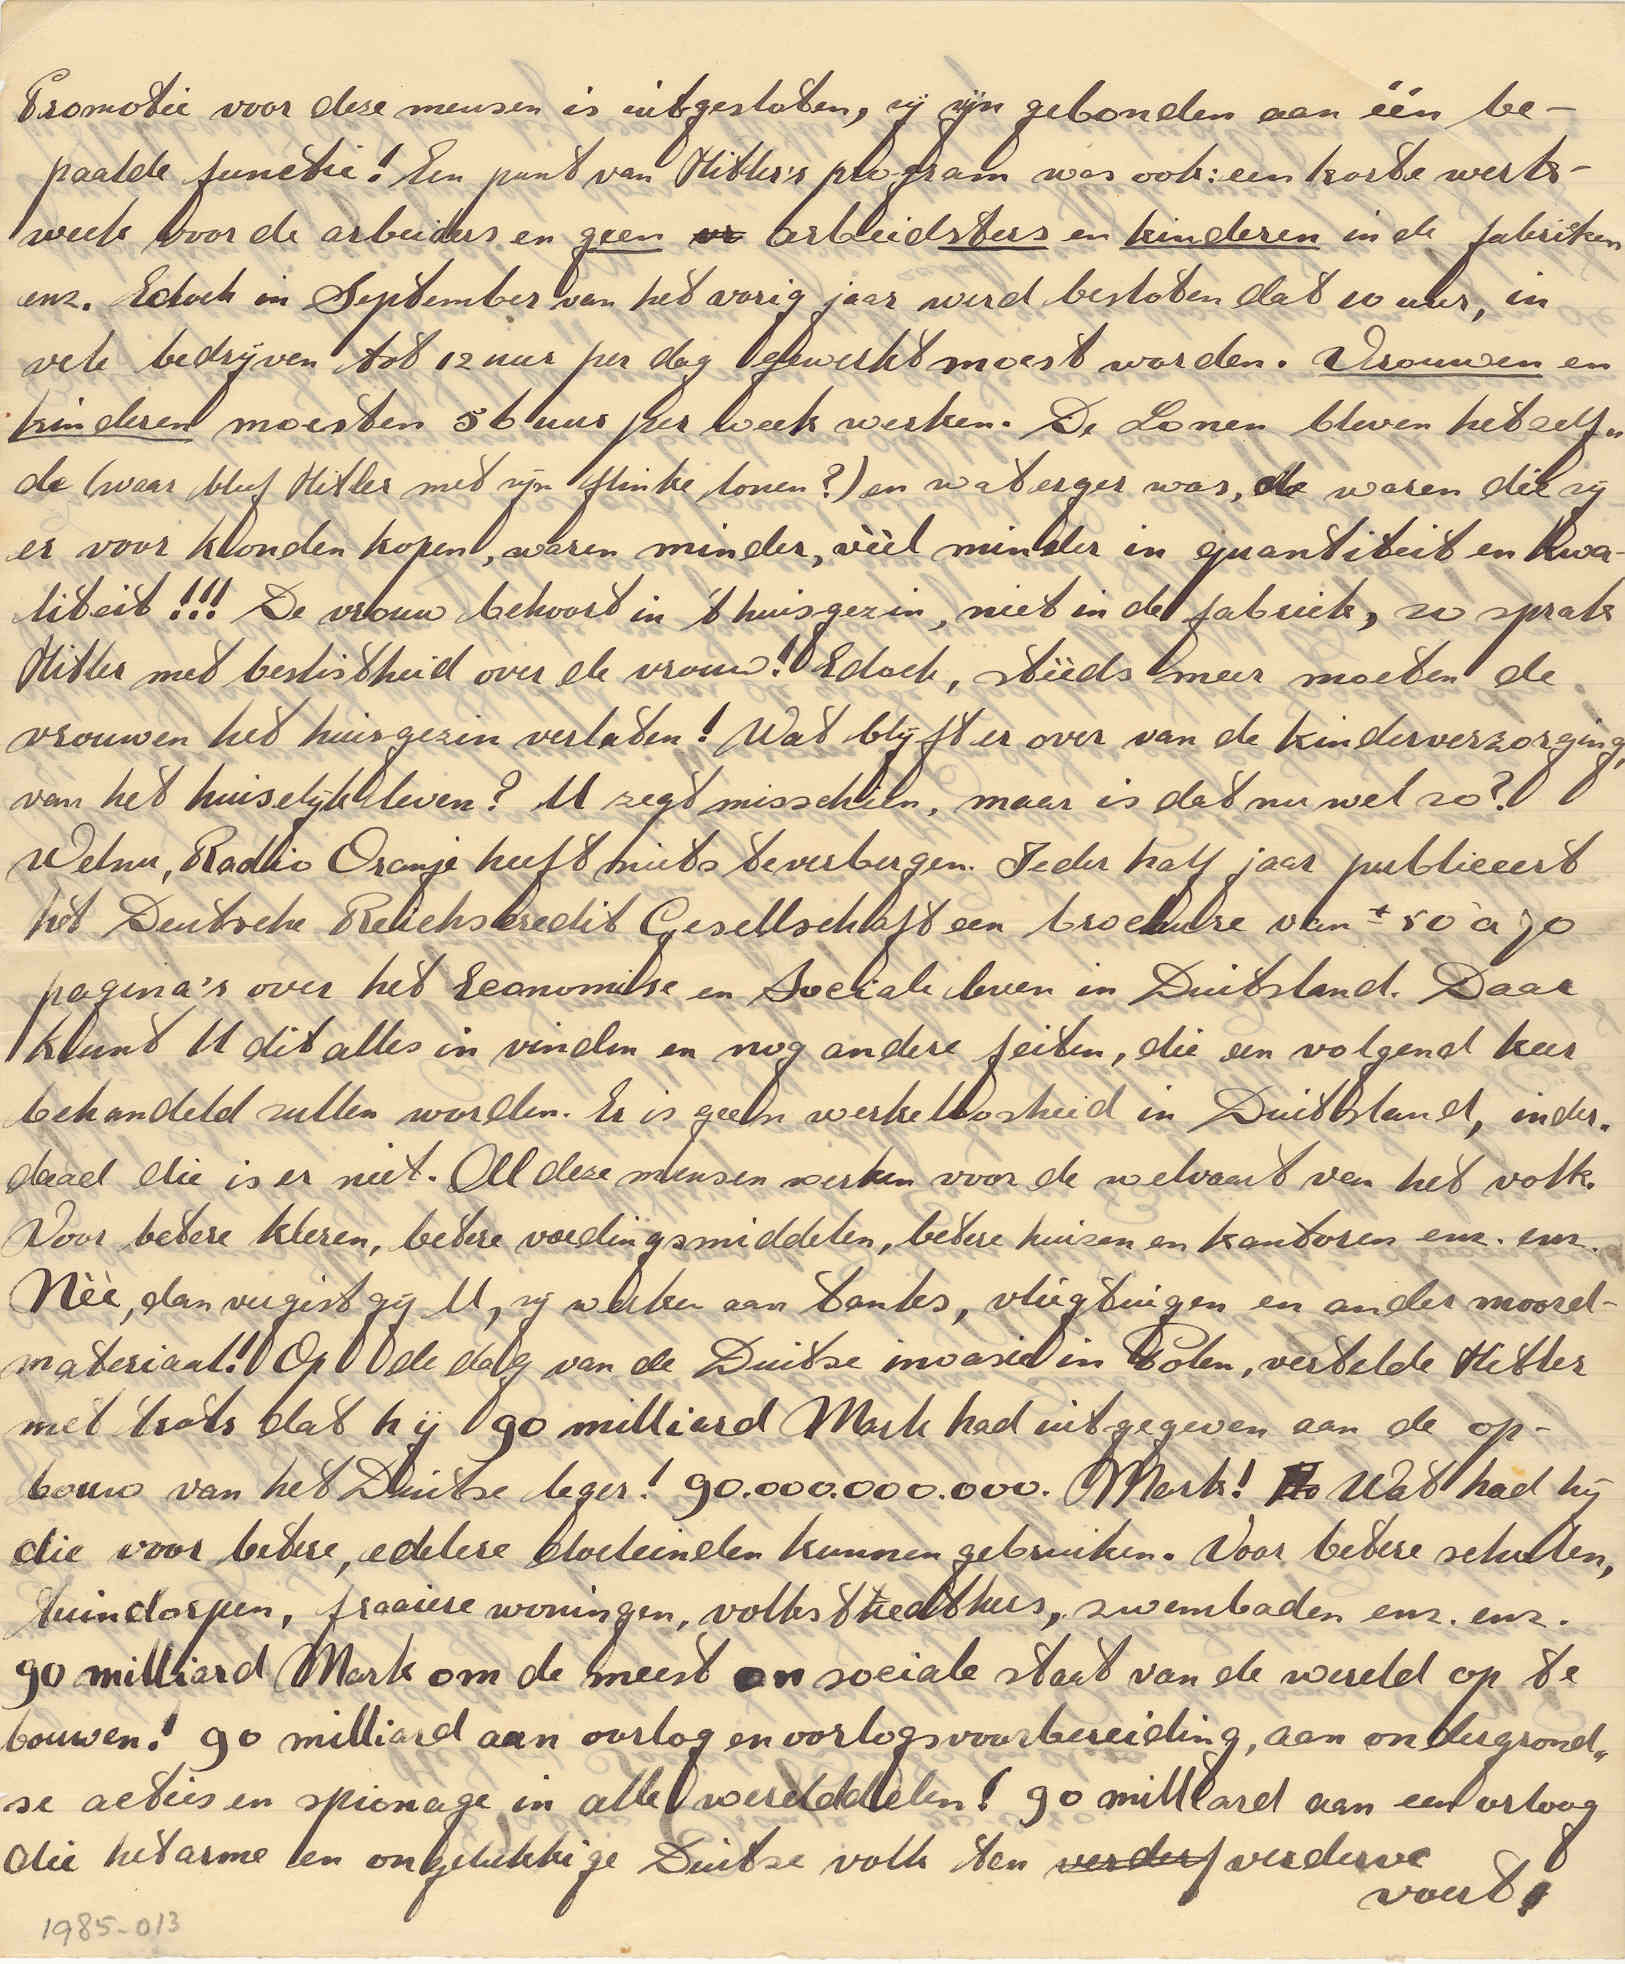 Promotie voor deze mensen is uitgesloten, zij zijn gebonden aan één be-
paalde functie! Een punt van Hitler's program was ook: een korte werk-
week voor de arbeiders en geen arbeidsters en kinderen in de fabrieken
enz. Edoch in September van het vorig jaar werd besloten dat 10 uur, in
vele bedrijven tot 12 uur per dag gewerkt moest worden. Vrouwen en
kinderen moesten 56 uur per week werken. De Lonen bleven hetzelf„
de (waar bleef Hitler met zijn flinke lonen?) en wat erger was, de waren die zij
er voor konden kopen, waren minder, vèèl minder in quantiteit en kwa-
liteit!!! De vrouw behoort in 't huisgezin, niet in de fabriek, zo sprak
Hitler met beslistheid over de vrouw! Edoch, stééds meer moeten de
vrouwen het huisgezin verlaten! Wat blijft er over van de kinderverzorging,
van het huiselijk leven? U zegt misschien, maar is dat nu wel zo?
Welnu, Radio Oranje heeft niets te verbergen. Ieder half jaar publiceert
het Deutsche Reichskredit Gesellschaft een brochure van ± 50 à 70
pagina's over het Economische en Sociale leven in Duitsland. Daar
kunt U dit alles in vinden en nog andere feiten, die een volgend keer
behandeld zullen worden. Er is geen werkeloosheid in Duitsland, inder-
daad die is er niet. All deze mensen werken voor de welvaart van het volk.
Voor betere kleren, betere voedingsmiddelen, betere huizen en kantoren enz. enz.
Nèè, dan vergist gij U, zij werken aan tanks, vliegtuigen en ander moord-
materiaal! Op de dag van de Duitse invasie in Polen, vertelde Hitler
met trots dat hij 90 milliard Mark had uitgegeven aan de op-
bouw van het Duitse leger! 90.000.000.000. Mark! Wat had hij
die voor betere, edelere doeleinden kunnen gebruiken. Voor betere scholen,
tuindorpen, fraaiere woningen, volkstheathers, zwembaden enz. enz.
90 milliard Mark om de meest on sociale staat van de wereld op te
bouwen! 90 milliard aan oorlog en oorlogsvoorbereiding, aan ondergrond„
se acties en spionage in alle werelddelen! 90 milliard aan een oorloog
die het arme en ongelukkige Duitse volk ten verderf verderve
voert!
1985-013